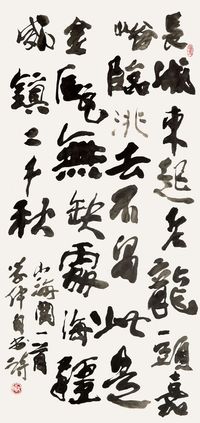 長城東起老龍頭嘉
峪臨洮去不留此是
金甌無缺處海疆
威鎮二千秋
山海關一首
仲自書詩